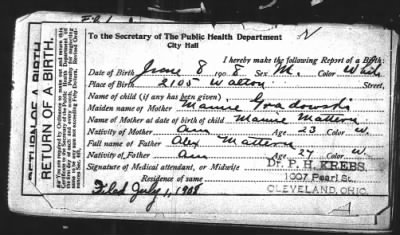 To the Secretary of The Public Health Department
City Hall
I hereby make the following Report of a Birth:
Date of Birth June 8 1908 Sex M. Color White
Place of Birth 2105 Walton Street,
Name of child (if any has been given)
Maiden name of Mother Mamie Gradowski
Name of Mother at date of birth of child Mamie Mattern
Nativity of Mother Am Age 23 Color W.
Full name of Father Alex Mattern
Nativity of Father Am Age 27 Color W.
Signature of Medical attendant, or Midwife Dr. P. H. KREBS,
Residence of same 1007 Pearl St.
CLEVELAND, OHIO.
Filed July 1, 1908
RETURN OF A BIRTH.
RETURN OF A BIRTH.